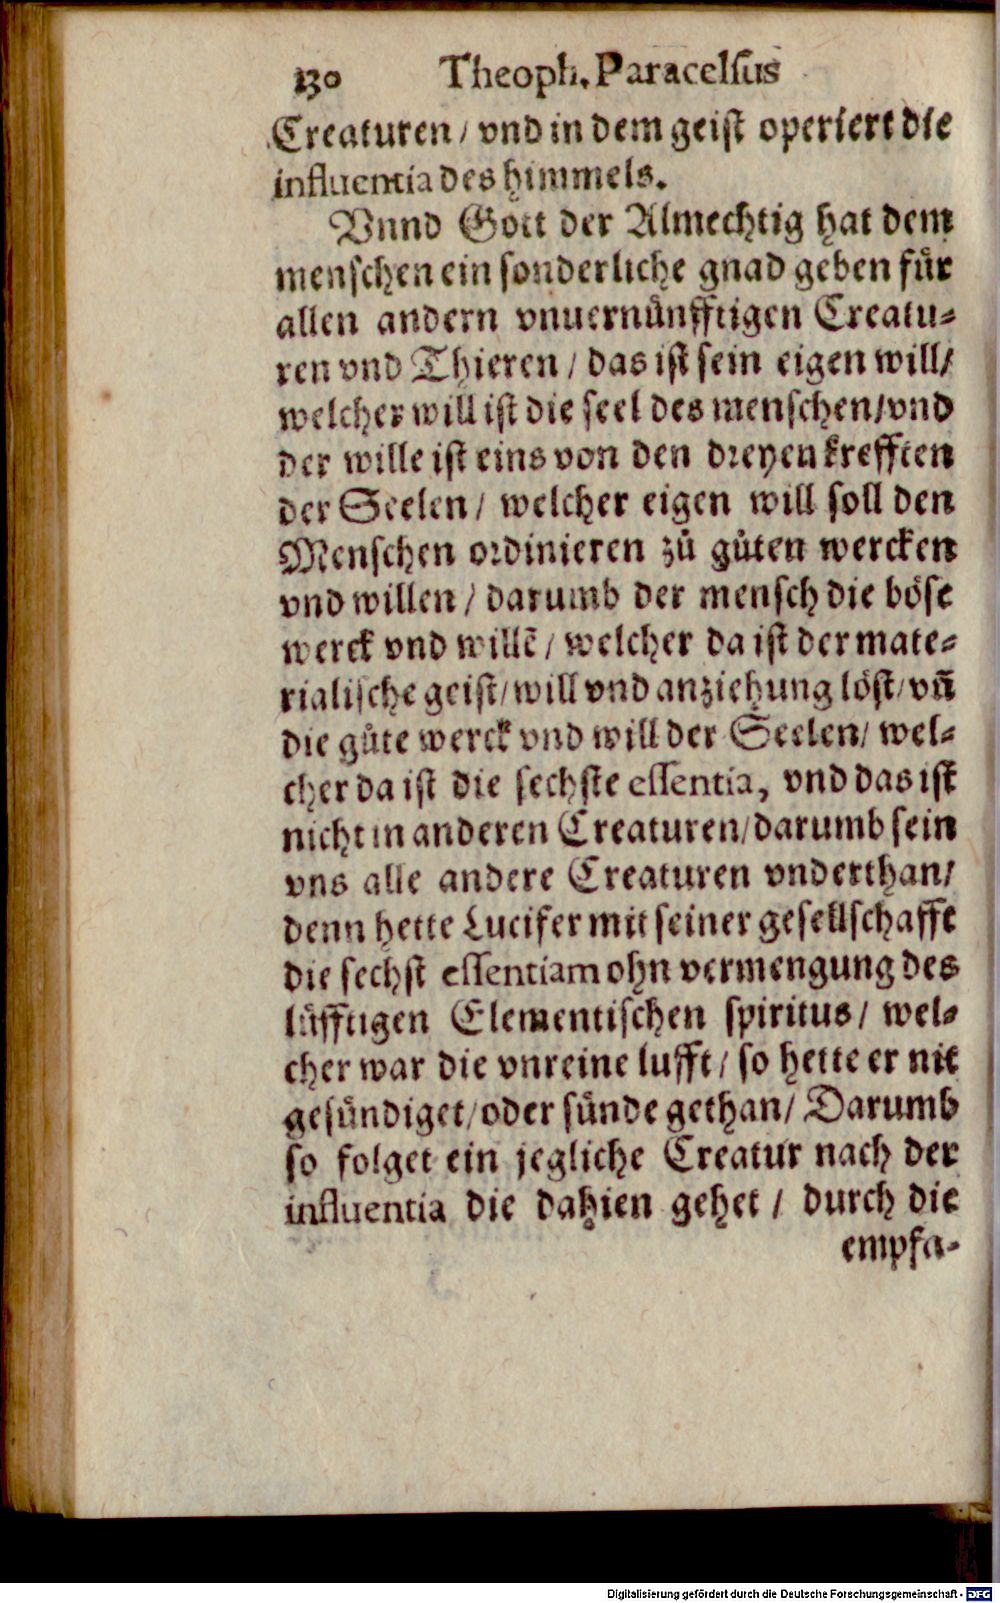 130 Theoph. Paracelsus
Creaturen / vnd in dem geist operiert die
influentia des himmels.
Vnnd Gott der Almechtig hat dem
menschen ein sonderliche gnad geben für
allen andern vnuernünfftigen Creatu-
ren vnd Thieren / das ist sein eigen will /
welcher will ist die seel des menschen / vnd
der wille ist eins von den dreyen krefften
der Seelen / welcher eigen will soll den
Menschen ordinieren zů gůten wercken
vnd willen / darumb der mensch die böse
werck vnd willē / welcher da ist der mate-
rialische geist / will vnd anziehung löst / vñ
die gůte werck vnd will der Seelen / wel-
cher da ist die sechste essentia, vnd das ist
nicht in anderen Creaturen / darumb sein
vns alle andere Creaturen vnderthan /
denn hette Lucifer mit seiner gesellschafft
die sechst essentiam ohn vermengung des
lüfftigen Elementischen spiritus / wel-
cher war die vnreine lufft / so hette er nit
gesündiget / oder sünde gethan / Darumb
so folget ein jegliche Creatur nach der
influentia die dahien gehet / durch die
empfa-
Digitalisierung gefördert durch die Deutsche Forschungsgemeinschaft - DFG